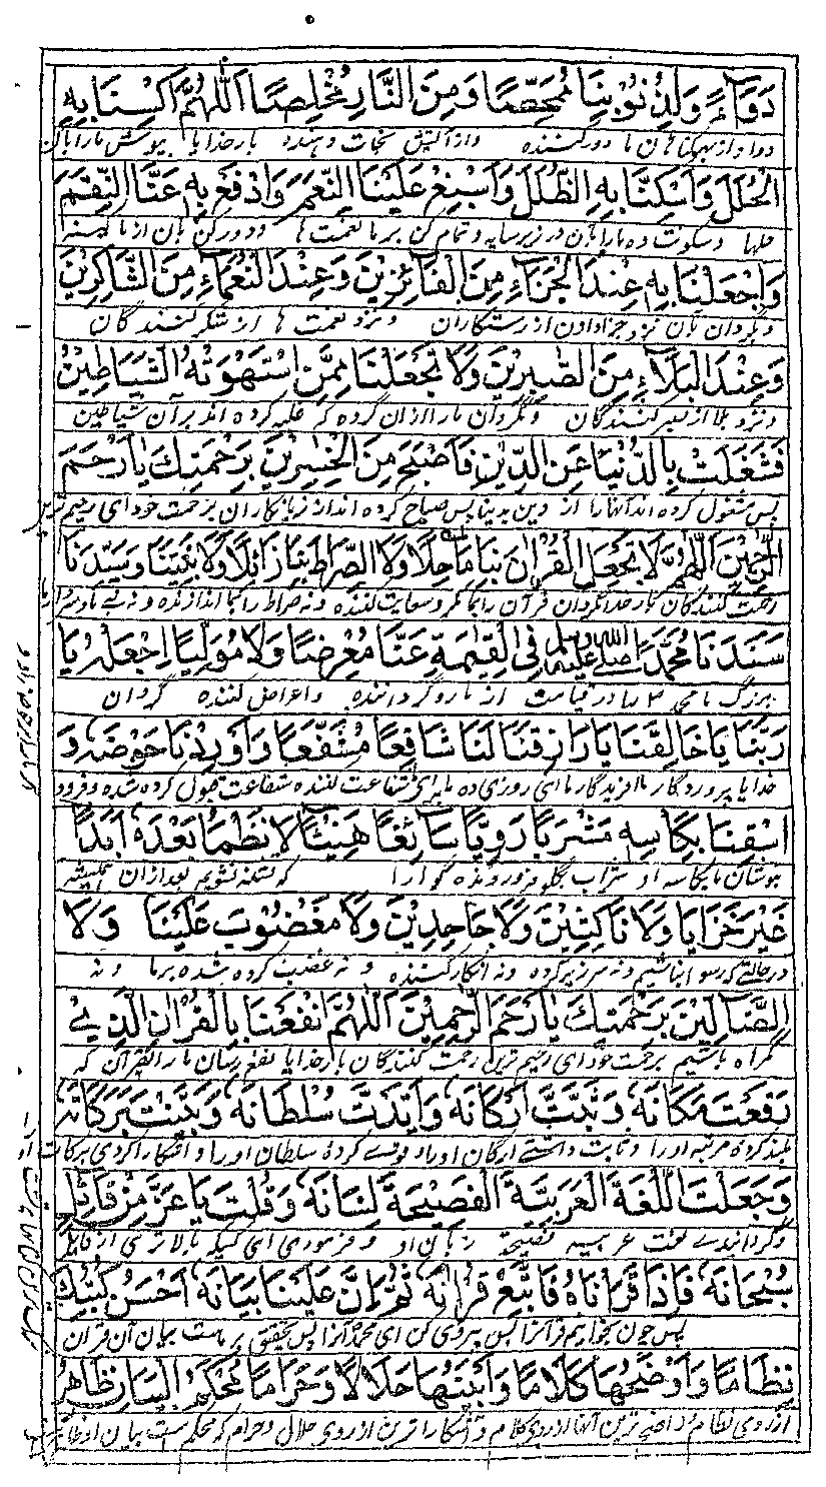 دَوَآءً وَلِذُنُوْبِنَا مُمَحِّصًا وَمِنَ النَّارِ مُخْلِصًا اَللّٰهُمَّ اكْسُنَا بِهِ
دوا و از گناهان ما دور کننده و از آتش نجات دهنده بار خدایا بپوش ما را بآن
الْحُلَلَ وَاَسْكِنَّا بِهِ الظُّلَلَ وَاَسْبِغْ عَلَيْنَا النِّعَمَ وَادْفَعْ بِهِ عَنَّا النِّقَمَ
حلها و سکونت ده ما را بآن در زیر سایه و تمام کن بر ما نعمت ها و دور کن بآن از ما
وَاجْعَلْنَا بِهِ عِنْدَ الْجَزَآءِ مِنَ الْفَآئِزِيْنَ وَعِنْدَ النَّعْمَآءِ مِنَ الشَّاكِرِيْنَ
و بگردان بآن نزد جزا دادن از رستگاران و نزد نعمت ها از شکر کنندگان
وَعِنْدَ الْبَلَآءِ مِنَ الصّٰبِرِيْنَ وَلَا تَجْعَلْنَا مِمَّنِ اسْتَهْوَتْهُ الشَّيَاطِيْنُ
و نزد بلا از صبر کنندگان و نگردان ما را ازان گروه که غلبه کرده اند بر آن شیاطین
فَشَغَلَتْ بِالدُّنْيَا عَنِ الدِّيْنِ فَاَصْبَحَ مِنَ الْخٰسِرِيْنَ بِرَحْمَتِكَ يَا اَرْحَمَ
پس مشغول کرده اند آنها را از دین بدینا پس صباح کرده اند از زیانکاران برحمت خود ای رحیم ترین
الرّٰحِمِيْنَ اَللّٰهُمَّ لَا تَجْعَلِ الْقُرْاٰنَ بِنَا مَاحِلًا وَلَا الصِّرَاطَ بِنَا زَائِلًا وَلَا نَبِيَّنَا وَسَيِّدَنَا
رحمت کنندگان بار خدایا نگردان قرآن را بما مکر و سعایت کننده و نه صراط را بما اندازنده و نه نبی ما و
سَنَدَنَا مُحَمَّدًا صلى الله عليه وسلم فِى الْقِيٰمَةِ عَنَّا مُعْرِضًا وَلَا مُوَلِّيًا اِجْعَلْهُ يَا
بزرگ ما محمد ص را در قیامت از ما رو گرداننده و اعراض کننده گردان
رَبَّنَا يَا خَالِقَنَا يَا رَازِقَنَا لَنَا شَافِعًا مُشَفَّعًا وَاَوْرِدْنَا حَوْضَهٗ وَ
خدایا پروردگار ما آفریدگار ما ای روزی ده ما برای شفاعت کننده شفاعت قبول کرده شده و فرود
اسْقِنَا بِكَاْسِهِ مَشْرَبًا رَوِيًّا سَآئِغًا هَنِيْئًا لَا نَظْمَاُ بَعْدَهٗ اَبَدًا
بنوشان ما بکاسه او شراب بگلو فرو رونده گوارا که تشنه نشویم بعد ازان همیشه
غَيْرَ خَزَايَا وَلَا نَاكِثِيْنَ وَلَا جَاحِدِيْنَ وَلَا مَغْضُوْبٍ عَلَيْنَا وَلَا
در حالتی که رسوا نباشیم و نه سرزیر کرده و نه انکار کننده و نه غضب کرده شده بر ما و نه
الضَّآلِّيْنَ بِرَحْمَتِكَ يَا اَرْحَمَ الرّٰحِمِيْنَ اَللّٰهُمَّ انْفَعْنَا بِالْقُرْاٰنِ الَّذِيْ
گمراه باشیم برحمت خود ای رحیم ترین رحمت کنندگان بار خدایا نفع رسان ما را بقرآن که
رَفَعْتَ مَكَانَهٗ وَثَبَّتَّ اَرْكَانَهٗ وَاَيَّدْتَ سُلْطَانَهٗ وَبَيَّنْتَ بَرَكَاتَهٗ
بلند کرده مرتبه او را و ثابت داشتی ارکان او را و قوی کرده سلطان او را و آشکارا کردی برکات او
وَجَعَلْتَ اللُّغَةَ الْعَرَبِيَّةَ الْفَصِيْحَةَ لِسَانَهٗ وَقُلْتَ يَا عَزَّ مِنْ قَائِلٍ
و گردانیدی لغت عربیه فصیحة زبان او و فرمودی ای کسیکه بالاتری از قایل
سُبْحَانَهٗ فَاِذَا قَرَاْنَاهُ فَاتَّبِعْ قُرْاٰنَهٗ ثُمَّ اِنَّ عَلَيْنَا بَيَانَهٗ اَحْسَنُ كُتُبِكَ
پس چون بخوانیم قرآن را پس پیروی کن ای محمد آنرا پس تحقیق بر ماست بیان آن قرآن
نِظَامًا وَاَوْضَحُهَا كَلَامًا وَاَبْيَنُهَا حَلَالًا وَحَرَامًا مُحْكَمُ الْبَيَانِ ظَاهِرُ
از روی نظام و واضح ترین آنها از روی کلام و آشکارا ترین از روی حلال و حرام که محکم است بیان او